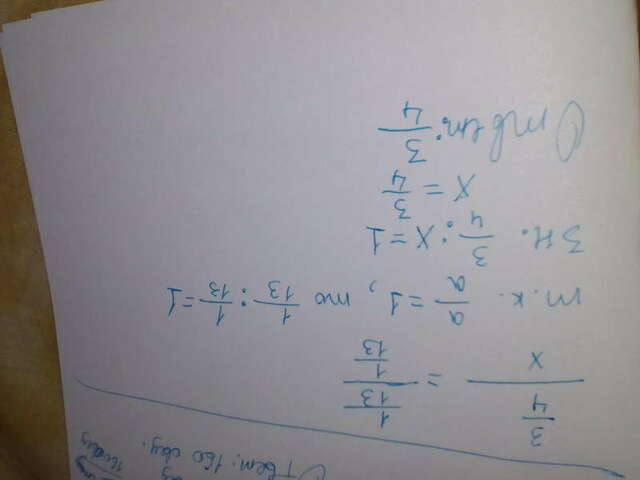 Ответ: 160 овц.
3/4 / x = 1/13 / 1/13
т.к. a/a = 1, то 1/13 : 1/13 = 1
Зн. 3/4 : x = 1
x = 3/4
Ответ: 3/4